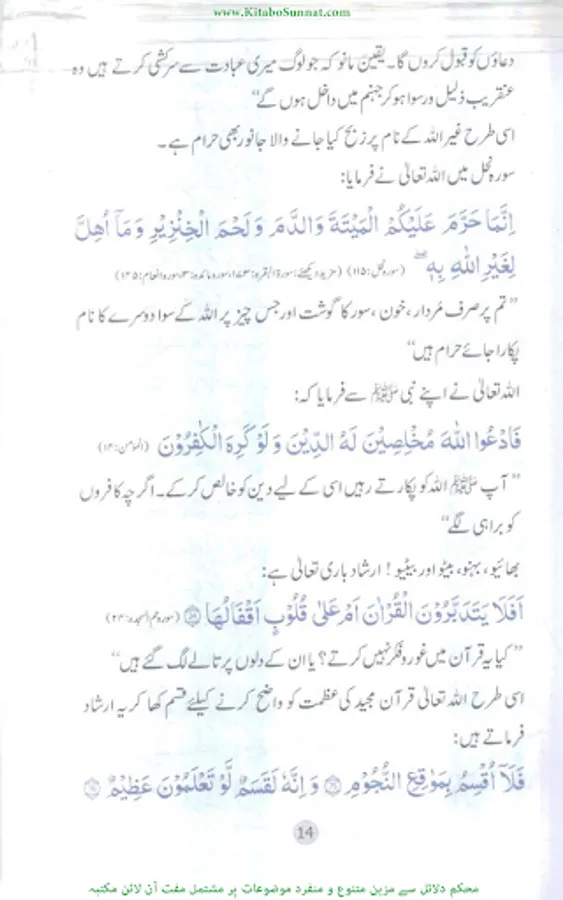 www.KitaboSunnat.com
دعاؤں کو قبول کروں گا۔ یقین مانو کہ جو لوگ میری عبادت سے سرکشی کرتے ہیں وہ
عنقریب ذلیل ورسوا ہوکر جہنم میں داخل ہوں گے“
اسی طرح غیر اللہ کے نام پر ذبح کیا جانے والا جانور بھی حرام ہے۔
سورہ نحل میں اللہ تعالیٰ نے فرمایا:
اِنَّمَا حَرَّمَ عَلَيْكُمُ الْمَيْتَةَ وَالدَّمَ وَلَحْمَ الْخِنْزِيْرِ وَمَآ اُهِلَّ
لِغَيْرِ اللّٰهِ بِهٖ ۚ (سورہ نحل: ۱۱۵) (مزید دیکھئے: سورۃ البقرہ: ۱۷۳، سورہ مائدہ: ۳، سورہ انعام: ۱۴۵)
”تم پر صرف مُردار، خون، سور کا گوشت اور جس چیز پر اللہ کے سوا دوسرے کا نام
پکارا جائے حرام ہیں“
اللہ تعالیٰ نے اپنے نبی ﷺ سے فرمایا کہ:
فَادْعُوا اللّٰهَ مُخْلِصِيْنَ لَهُ الدِّيْنَ وَلَوْ كَرِهَ الْكٰفِرُوْنَ (المؤمن: ۱۴)
”آپ ﷺ اللہ کو پکارتے رہیں اسی کے لیے دین کو خالص کرکے۔ اگرچہ کافروں
کو برا ہی لگے“
بھائیو، بہنو، بیٹو اور بیٹیو! ارشاد باری تعالیٰ ہے:
اَفَلَا يَتَدَبَّرُوْنَ الْقُرْاٰنَ اَمْ عَلٰى قُلُوْبٍ اَقْفَالُهَا (سورہ حم السجدہ: ۲۴)
”کیا یہ قرآن میں غور و فکر نہیں کرتے؟ یا ان کے دلوں پر تالے لگ گئے ہیں“
اسی طرح اللہ تعالیٰ قرآن مجید کی عظمت کو واضح کرنے کیلئے قسم کھا کر یہ ارشاد
فرماتے ہیں:
فَلَآ اُقْسِمُ بِمَوٰقِعِ النُّجُوْمِ ۝ وَاِنَّهٗ لَقَسَمٌ لَّوْ تَعْلَمُوْنَ عَظِيْمٌ ۝
14
محکم دلائل سے مزین متنوع و منفرد موضوعات پر مشتمل مفت آن لائن مکتبہ